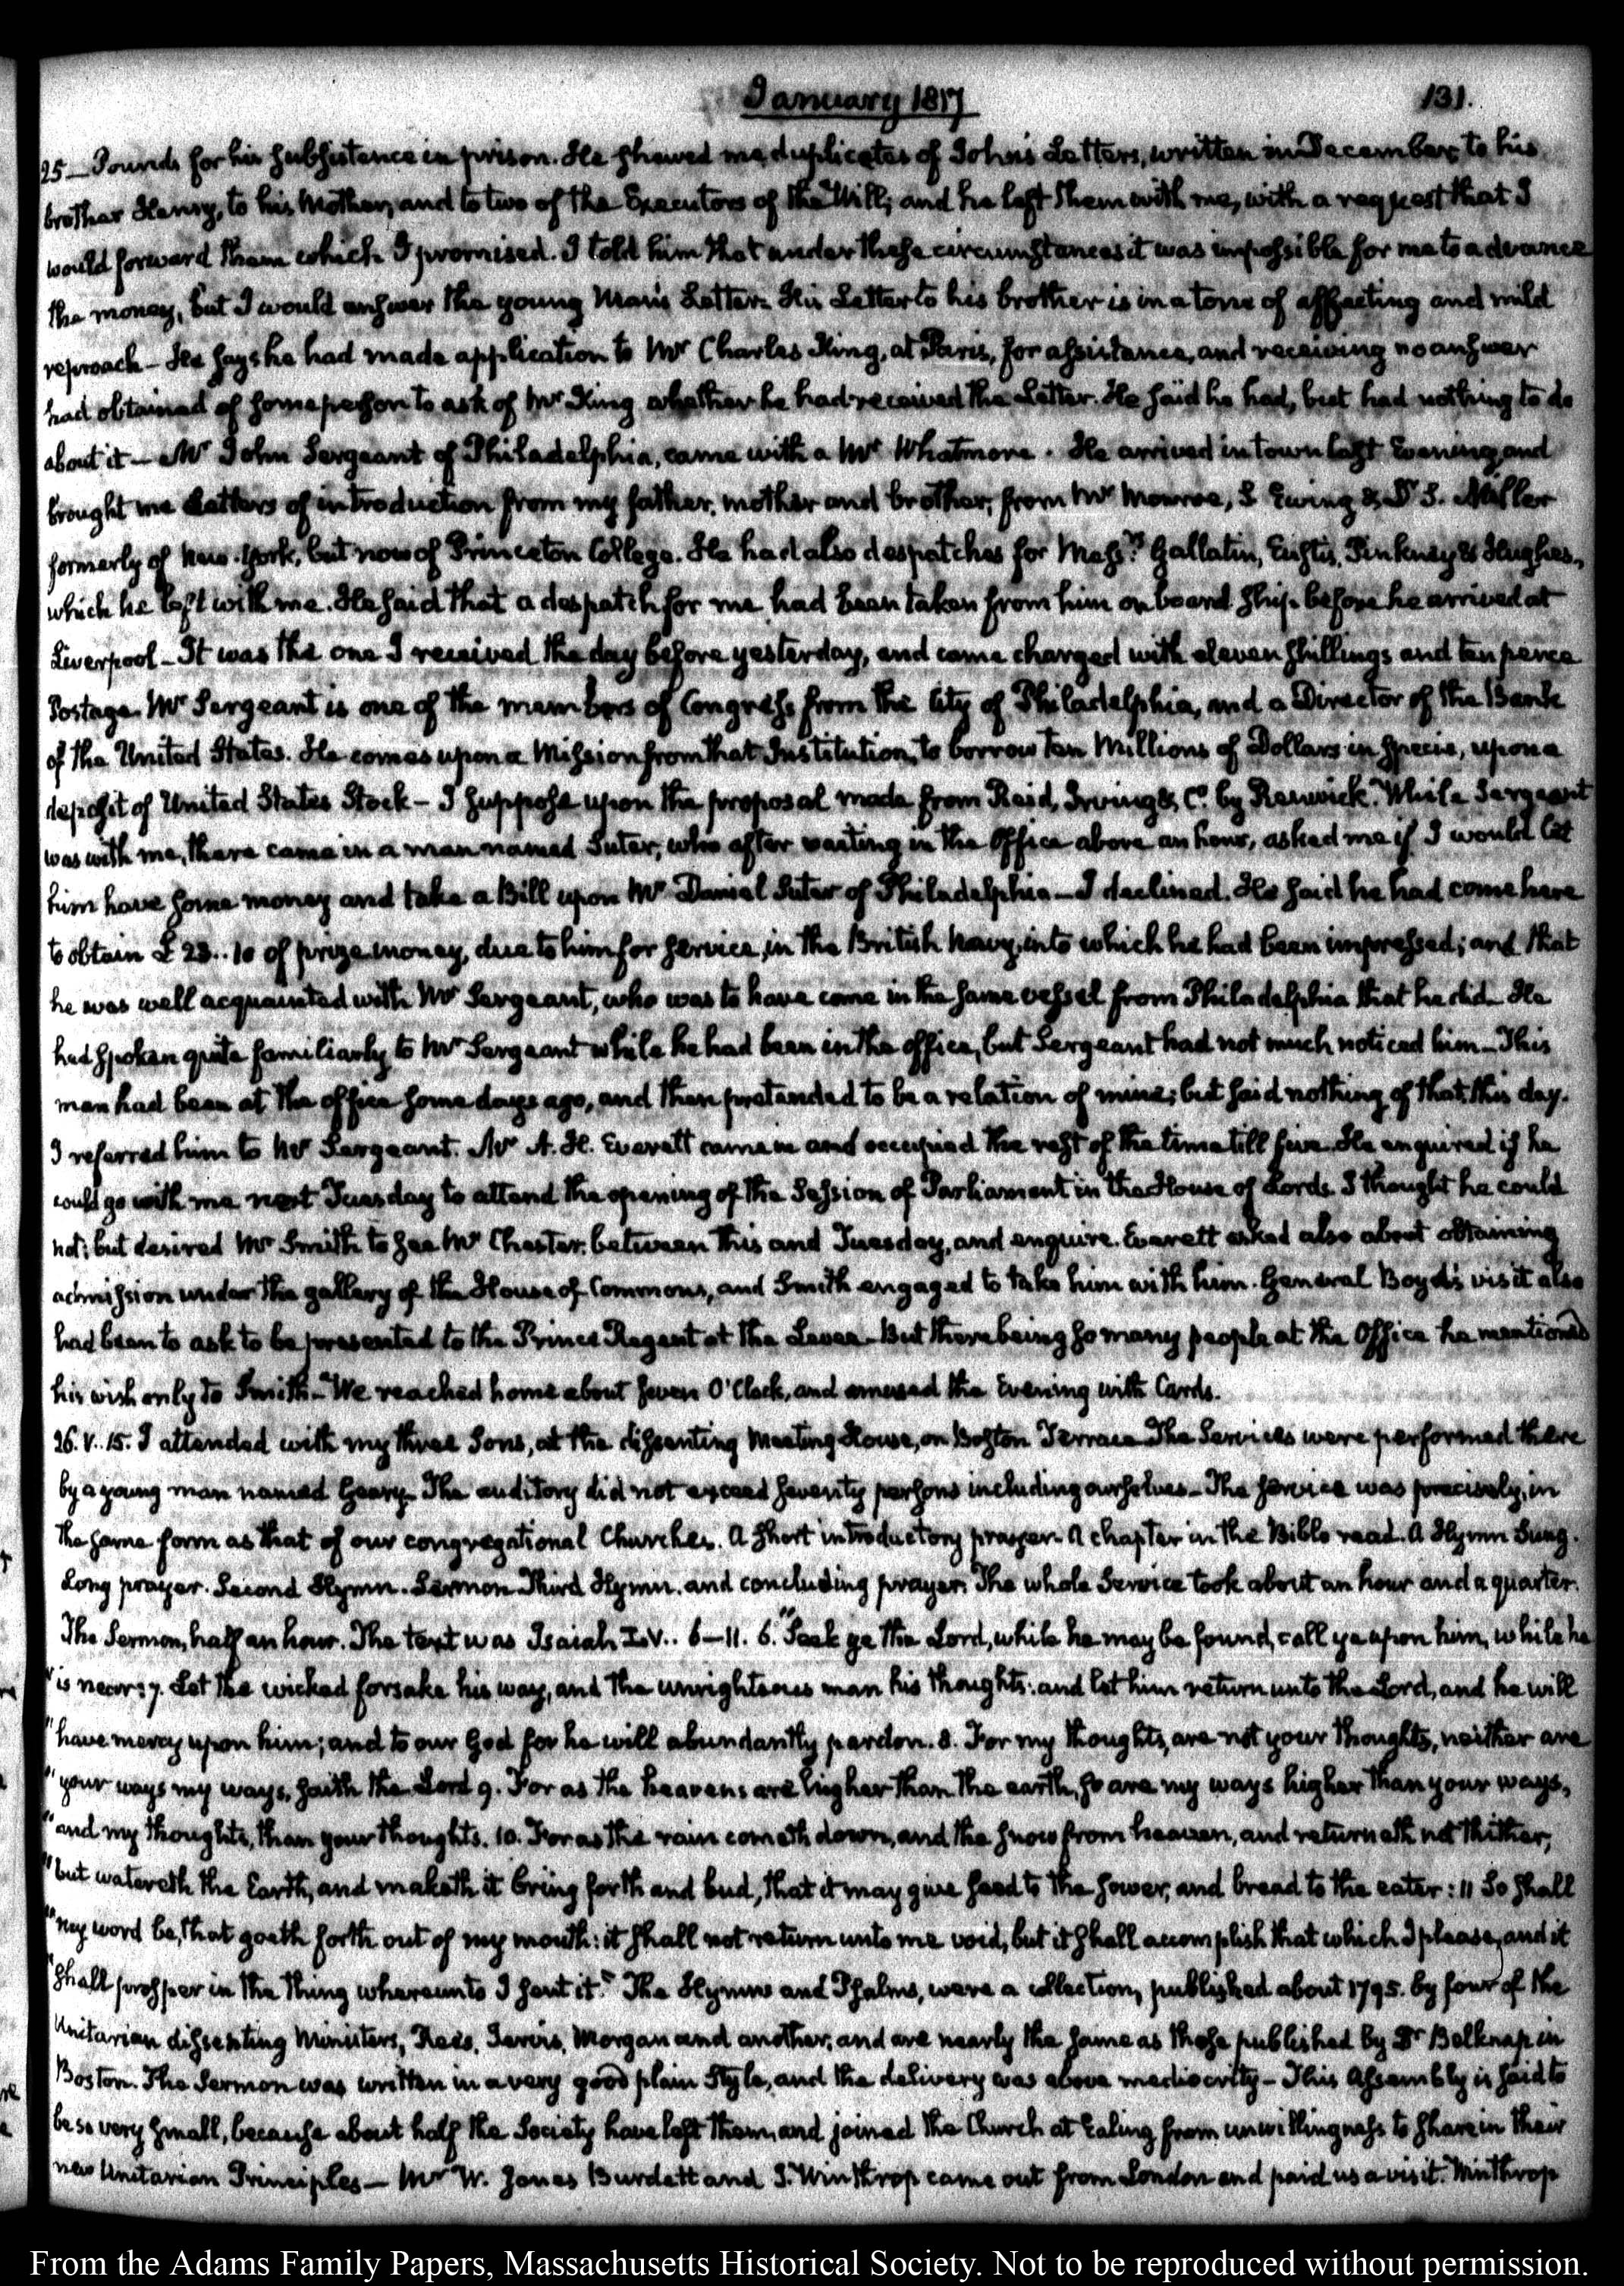 January 1817
131.
25— Pounds for his subsistence in prison. He shewed me duplicates of John's Letters, written in December, to his
brother Henry, to his Mother, and to two of the Executors of the Will; and he left them with me, with a request that I
would forward them which I promised. I told him that under these circumstances it was impossible for me to advance
the money, but I would answer the young Man's Letter. His Letter to his brother is in a tone of affecting and mild
reproach— He says he had made application to Mr Charles King, at Paris, for assistance, and receiving no answer
had obtained of some person to ask of Mr King whether he had received the Letter. He said he had, but had nothing to do
about it— Mr John Sergeant of Philadelphia, came with a Mr Whatmore. He arrived in town last Evening, and
brought me Letters of introduction from my father, mother and brother, from Mr Monroe, S Ewing & Dr S. Miller
formerly of New-York, but now of Princeton College. He had also despatches for Messrs Gallatin, Eustis, Pinkney & Hughes,
which he left with me. He said that a despatch for me had been taken from him on board ship before he arrived at
Liverpool— It was the one I received the day before yesterday, and came charged with eleven shillings and ten pence
Postage. Mr Sergeant is one of the members of Congress from the City of Philadelphia, and a Director of the Bank
of the United States. He comes upon a Mission from that Institution, to borrow ten Millions of Dollars in specie, upon a
deposit of United States Stock— I suppose upon the proposal made from Reid, Irving & Co. by Renwick. While Sergeant
was with me, there came in a man named Suter, who after waiting in the Office above an hour, asked me if I would let
him have some money and take a Bill upon Mr Daniel Suter of Philadelphia— I declined. He said he had come here
to obtain £ 23..10 of prize money, due to him for service, in the British Navy, into which he had been impressed; and that
he was well acquainted with Mr Sergeant, who was to have come in the same vessel from Philadelphia that he did— He
had spoken quite familiarly to Mr Sergeant while he had been in the office, but Sergeant had not much noticed him— This
man had been at the office some days ago, and then pretended to be a relation of mine; but said nothing of that this day.
I referred him to Mr Sergeant. Mr A. H. Everett came in and occupied the rest of the time till five. He enquired if he
could go with me next Tuesday to attend the opening of the Session of Parliament in the House of Lords. I thought he could
not; but desired Mr Smith to see Mr Chester, between this and Tuesday, and enquire. Everett asked also about obtaining
admission under the gallery of the House of Commons, and Smith engaged to take him with him. General Boyd's visit also
had been to ask to be presented to the Prince Regent at the Levee— But there being so many people at the Office he mentioned
his wish only to Smith— We reached home about seven O'Clock, and amused the Evening with Cards.
26. V..15. I attended with my three Sons, at the dissenting Meeting House, on Boston Terrace. The Services were performed there
by a young man named Geary— The auditory did not exceed seventy persons including ourselves— The service was precisely, in
the same form as that of our congregational Churches. A short introductory prayer. A chapter in the Bible read. A Hymn Sung.
Long prayer. Second Hymn. Sermon. Third Hymn, and concluding prayer. The whole Service took about an hour and a quarter.
The Sermon, half an hour. The text was Isaiah LV.. 6—11. 6. "Seek ye the Lord, while he may be found, call ye upon him, while he
"is near: 7. Let the wicked forsake his way, and the unrighteous man his thoughts: and let him return unto the Lord, and he will
"have mercy upon him; and to our God for he will abundantly pardon. 8. For my thoughts, are not your thoughts, neither are
"your ways my ways, saith the Lord 9. For as the heavens are higher than the earth, so are my ways higher than your ways,
"and my thoughts, than your thoughts. 10. For as the rain cometh down, and the snow from heaven, and returneth not thither,
"but watereth the Earth, and maketh it bring forth and bud, that it may give seed to the sower, and bread to the eater: 11 So shall
"my word be, that goeth forth out of my mouth: it shall not return unto me void, but it shall accomplish that which I please, and it
"shall prosper in the thing whereunto I sent it." The Hymns and Psalms, were a collection, published about 1795. by four of the
Unitarian dissenting Ministers, Rees, Jervis, Morgan and another, and are nearly the same as those published by Dr Belknap in
Boston. The Sermon was written in a very good plain Style, and the delivery was above mediocrity— This Assembly is said to
be so very small, because about half the Society have left them, and joined the Church at Ealing from unwillingness to share in their
new Unitarian Principles— Mr W. Jones Burdett and J. Winthrop came out from London and paid us a visit. Winthrop
From the Adams Family Papers, Massachusetts Historical Society. Not to be reproduced without permission.